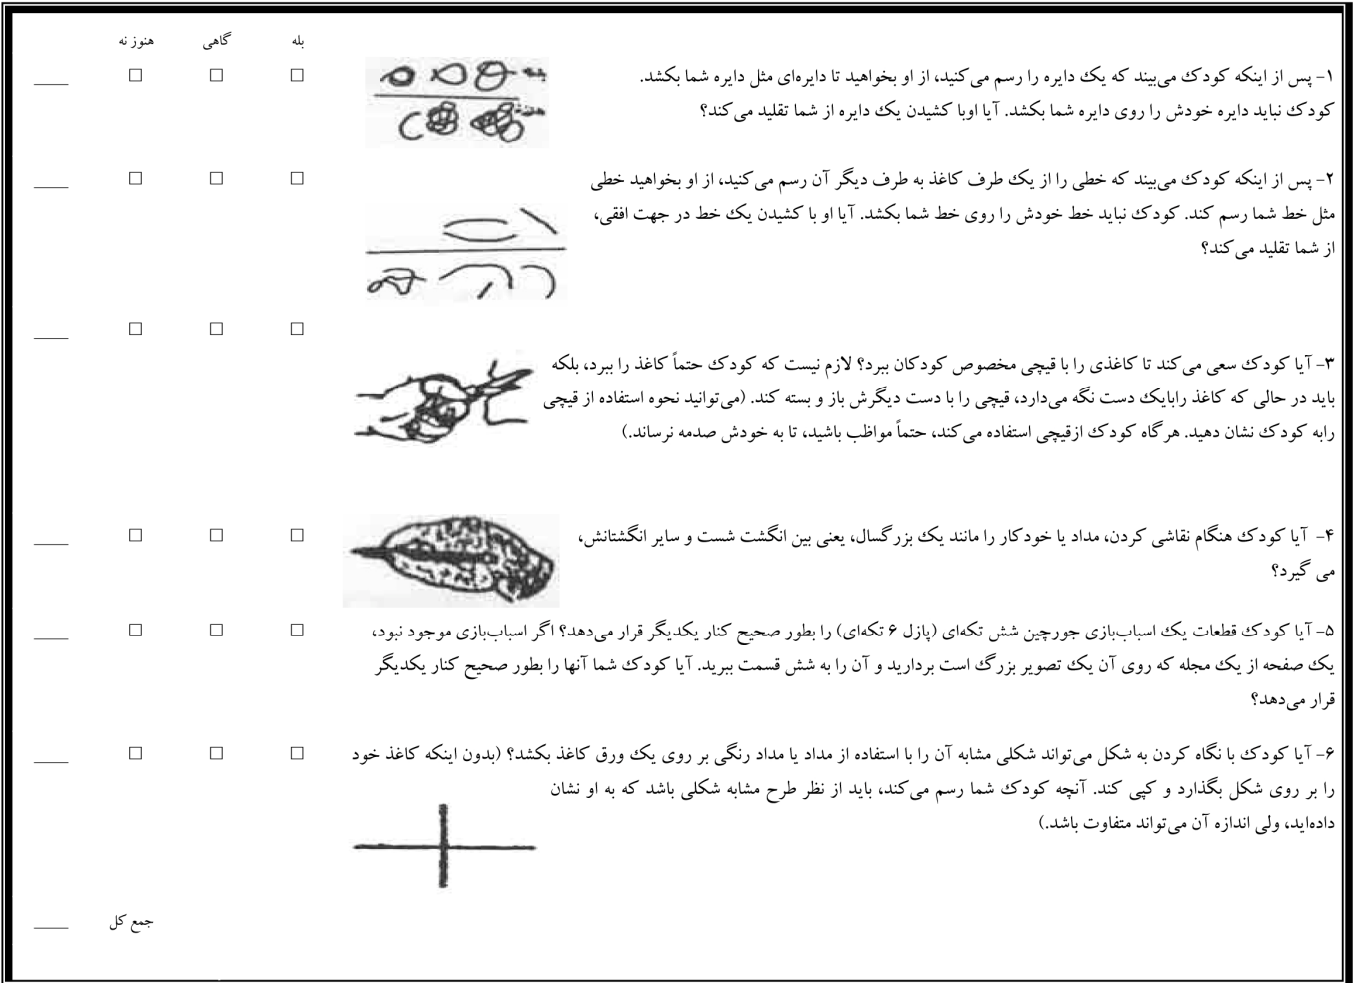 بله گاهی هنوز نه
۱- پس از اینکه کودک می‌بیند که یک دایره را رسم می‌کنید، از او بخواهید تا دایره‌ای مثل دایره شما بکشد.
کودک نباید دایره خودش را روی دایره شما بکشد. آیا اوبا کشیدن یک دایره از شما تقلید می‌کند؟
۲- پس از اینکه کودک می‌بیند که خطی را از یک طرف کاغذ به طرف دیگر آن رسم می‌کنید، از او بخواهید خطی
مثل خط شما رسم کند. کودک نباید خط خودش را روی خط شما بکشد. آیا او با کشیدن یک خط در جهت افقی،
از شما تقلید می‌کند؟
۳- آیا کودک سعی می‌کند تا کاغذی را با قیچی مخصوص کودکان ببرد؟ لازم نیست که کودک حتماً کاغذ را ببرد، بلکه
باید در حالی که کاغذ رابایک دست نگه می‌دارد، قیچی را با دست دیگرش باز و بسته کند. (می‌توانید نحوه استفاده از قیچی
رابه کودک نشان دهید. هر گاه کودک ازقیچی استفاده می‌کند، حتماً مواظب باشید، تا به خودش صدمه نرساند.)
۴- آیا کودک هنگام نقاشی کردن، مداد یا خودکار را مانند یک بزرگسال، یعنی بین انگشت شست و سایر انگشتانش،
می گیرد؟
۵- آیا کودک قطعات یک اسباب‌بازی جورچین شش تکه‌ای (پازل ۶ تکه‌ای) را بطور صحیح کنار یکدیگر قرار می‌دهد؟ اگر اسباب‌بازی موجود نبود،
یک صفحه از یک مجله که روی آن یک تصویر بزرگ است بردارید و آن را به شش قسمت ببرید. آیا کودک شما آنها را بطور صحیح کنار یکدیگر
قرار می‌دهد؟
۶- آیا کودک با نگاه کردن به شکل می‌تواند شکلی مشابه آن را با استفاده از مداد یا مداد رنگی بر روی یک ورق کاغذ بکشد؟ (بدون اینکه کاغذ خود
را بر روی شکل بگذارد و کپی کند. آنچه کودک شما رسم می‌کند، باید از نظر طرح مشابه شکلی باشد که به او نشان
داده‌اید، ولی اندازه آن می‌تواند متفاوت باشد.)
جمع کل